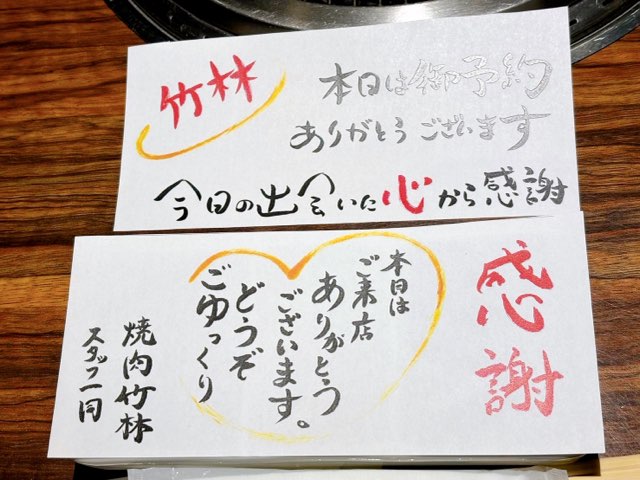 竹林
本日は御予約
ありがとうございます
今日の出会いに心から感謝
感謝
本日は
ご来店
ありがとう
ございます。
どうぞ
ごゆっくり
焼肉竹林
スタッフ一同